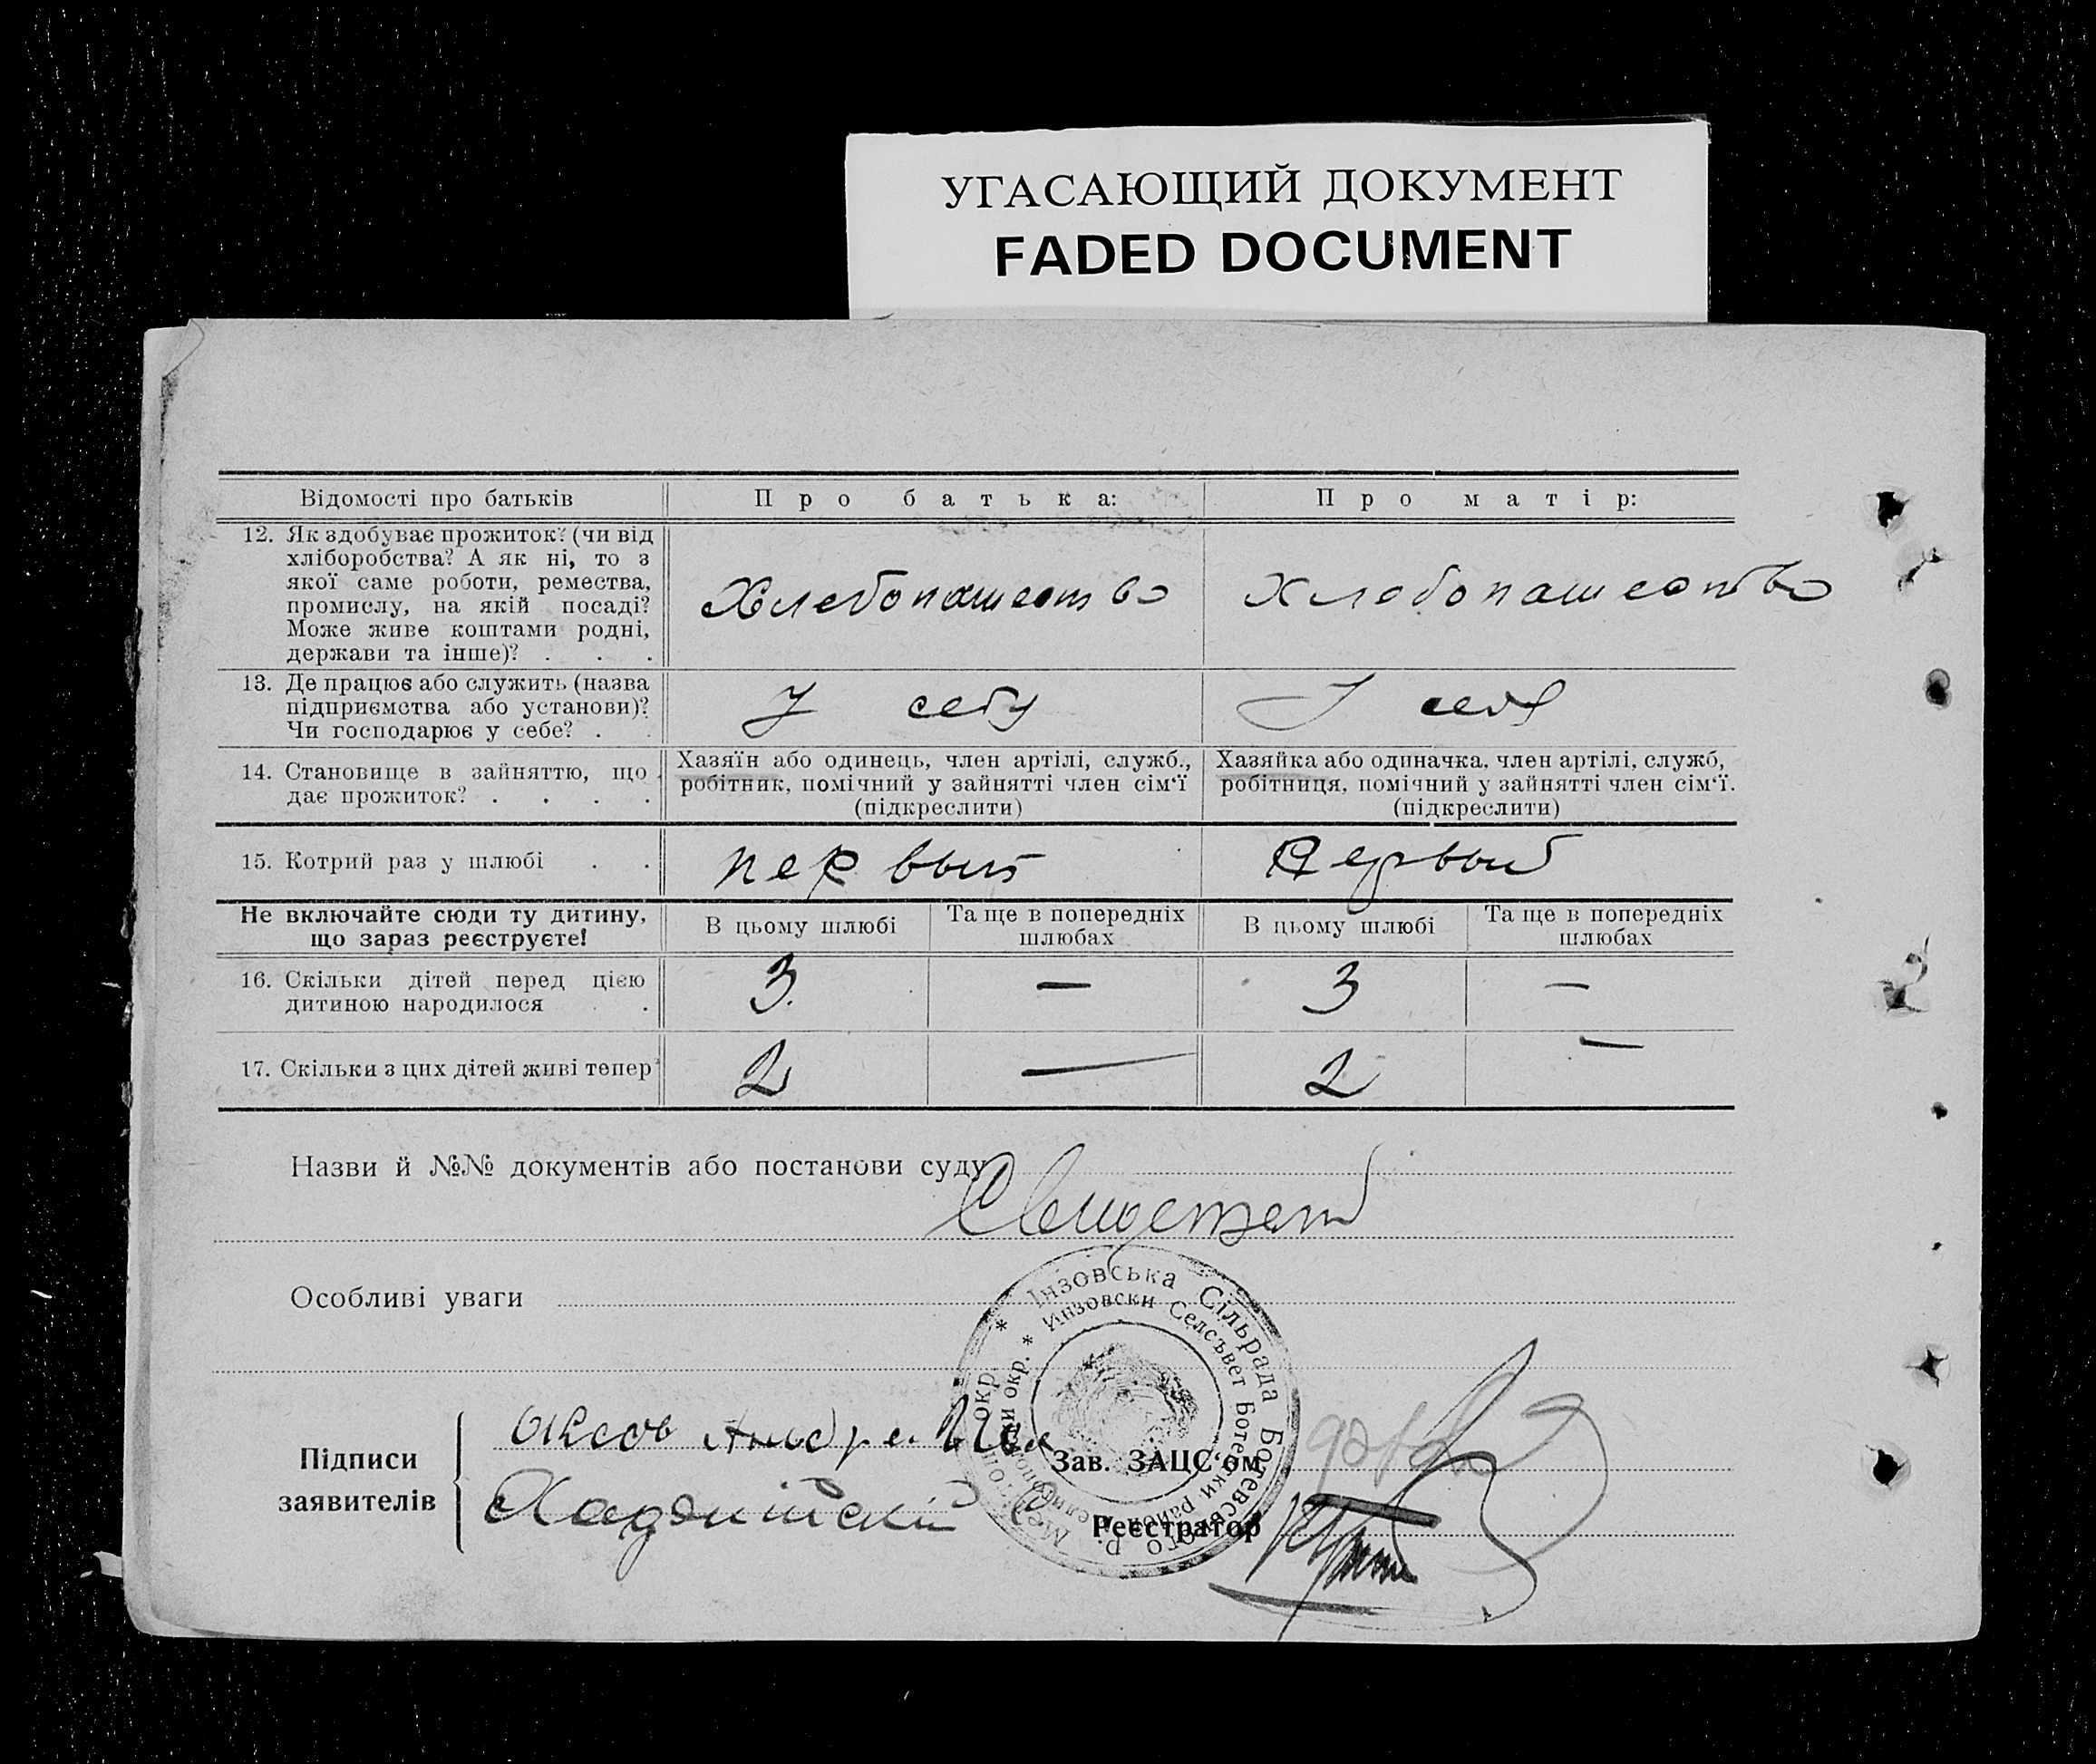 УГАСАЮЩИЙ ДОКУМЕНТ
FADED DOCUMENT
Відомості про батьків
Про батька:
Про матір:
12. Як здобуває прожиток? (чи від
хліборобства? А як ні, то з
якої саме роботи, ремества,
промислу, на якій посаді?
Може живе коштами родні,
держави та інше)? . . .
Хлебопашество
Хлебопашество
13. Де працює або служить (назва
підприємства або установи)?
Чи господарює у себе? . .
У себя
У себя
14. Становище в зайняттю, що
дає прожиток? . . . .
Хазяїн або одинець, член артілі, служб.,
робітник, помічний у зайнятті член сім‘ї
(підкреслити)
Хазяйка або одиначка, член артілі, служб,
робітниця, помічний у зайнятті член сім‘ї.
(підкреслити)
15. Котрий раз у шлюбі . .
первый
первый
Не включайте сюди ту дитину,
що зараз реєструєте!
В цьому шлюбі
Та ще в попередніх
шлюбах
В цьому шлюбі
Та ще в попередніх
шлюбах
16. Скільки дітей перед цією
дитиною народилося . .
3
—
3
—
17. Скільки з цих дітей живі тепер
2
—
2
—
Назви й №№ документів або постанови суду
Особливі уваги
* Інзовська Сільрада Ботевського р. Мелітопо окр.
* Инзовски Селсъвет Ботевски район Мелитополски окр.
Підписи
заявителів
Зав. ЗАЦС‘ом
Реєстратор